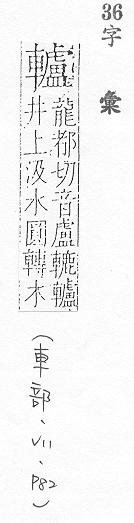 36 字彙
轤 龍都切音盧轆轤
井上汲水圓轉木
（車部、VII、P82）